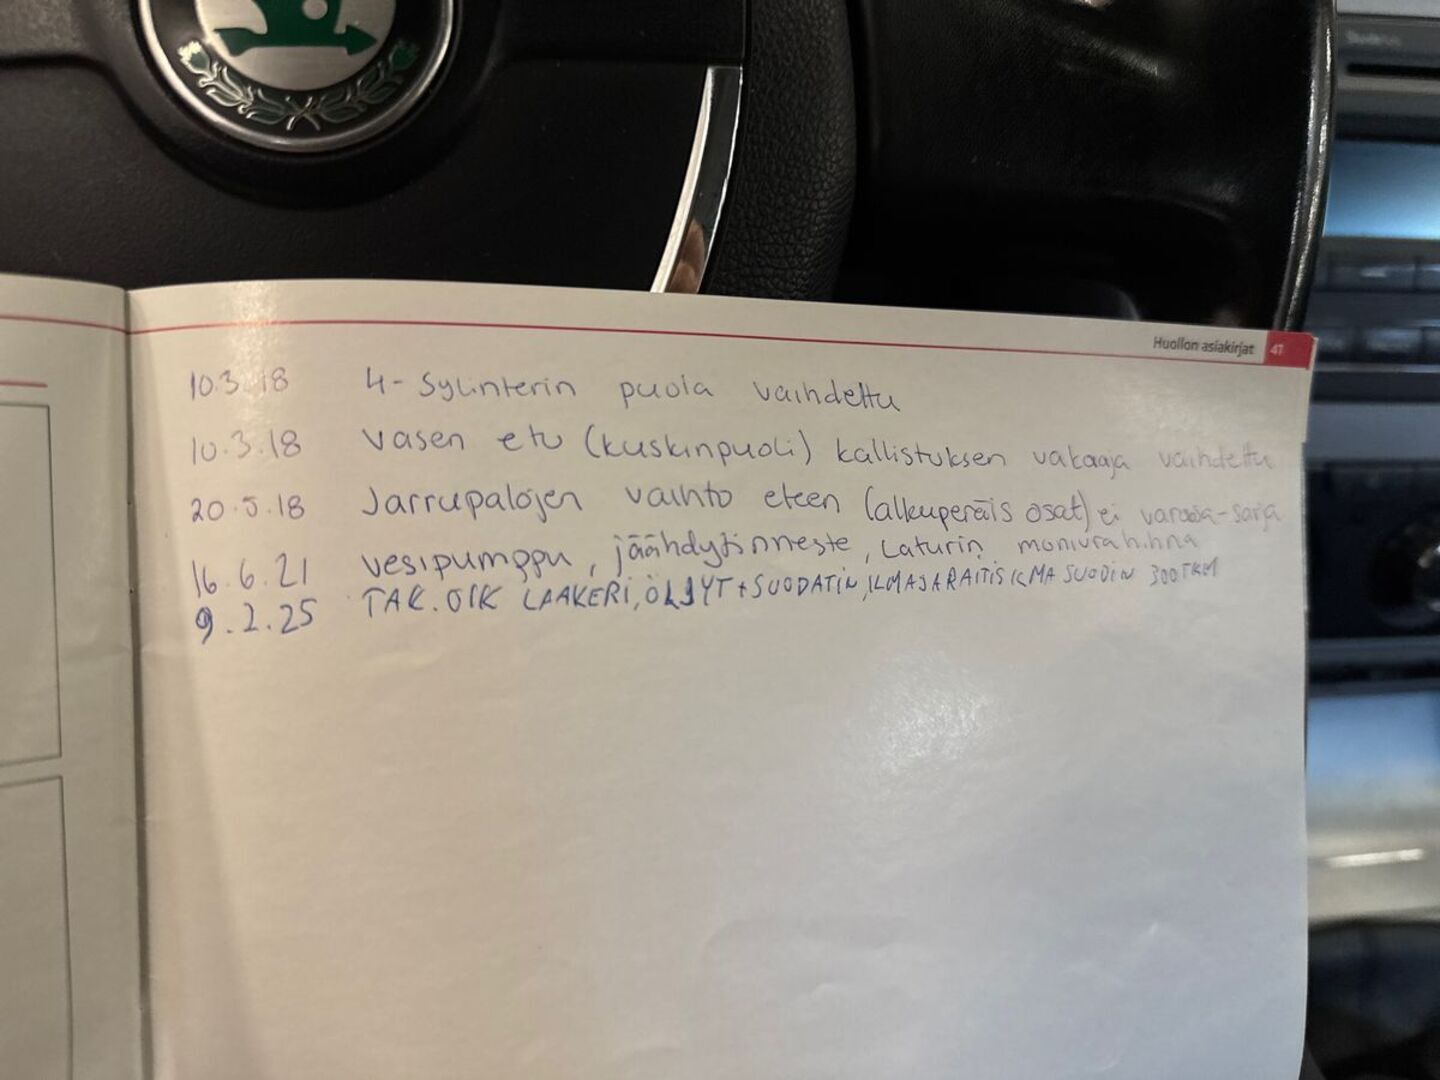 Huollon asiakirjat 41
10.3.18 4-Sylinterin puola vaihdettu
10.3.18 vasen etu (kuskinpuoli) kallistuksen vakaaja vaihdettu
20.5.18 Jarrupalojen vaihto eteen (alkuperäis osat) ei varaosa-sarja
16.6.21 vesipumppu, jäähdytinneste, Laturin moniurahihna
9.2.25 TAK. OIK LAAKERI, ÖLJYT + SUODATIN, ILMASA RAITIS ILMA SUODIN 300TKM